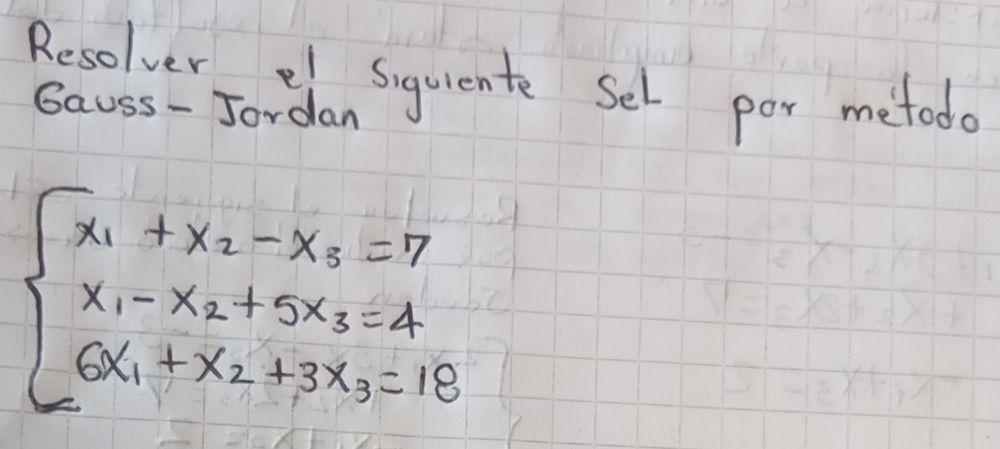 Resolver el siguiente Sel por método
Gauss-Jordan
x₁ + x₂ - x₃ = 7
x₁ - x₂ + 5x₃ = 4
6x₁ + x₂ + 3x₃ = 18